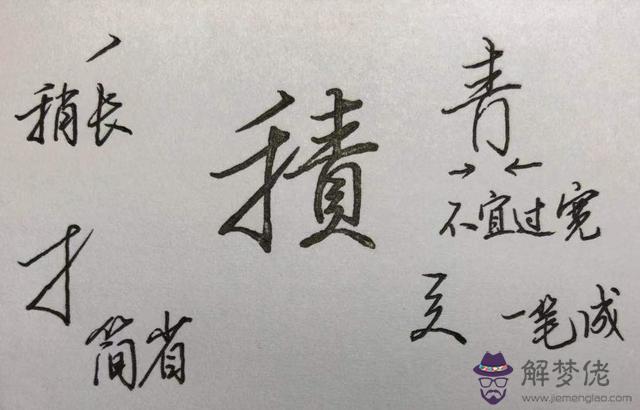 稍长
積
青
→ ←
不宜过宽
才
简省
一笔成
解梦佬
www.jiemenglao.com